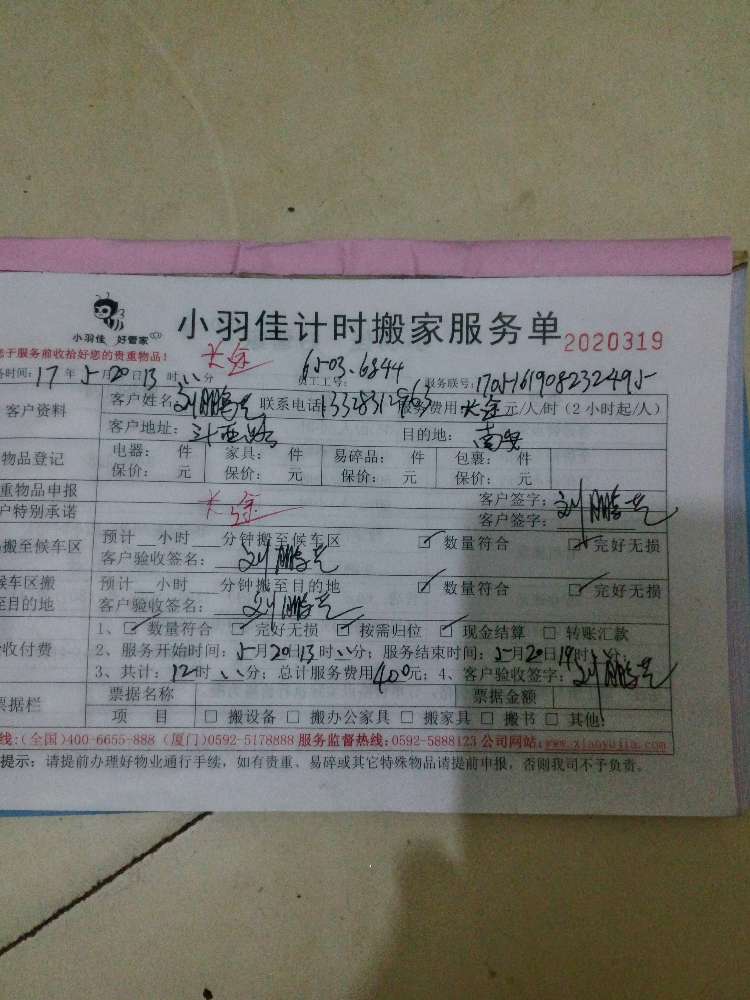 小羽佳 好管家
小羽佳计时搬家服务单 2020319
您于服务前收拾好您的贵重物品!
长途
务时间: 17 年 5 月 20 日 13 时 分 员工工号: 6503.6844 服务联号: 170516190823249 5
客户资料 客户姓名: 刘鹏 联系电话: 服务费用: 长途 元/人/时 (2小时起/人)
客户地址: 斗西路 目的地: 南安
物品登记 电器: 件 家具: 件 易碎品: 件 包裹: 件
保价: 元 保价: 元 保价: 元 保价: 元
重物品申报 客户签字: 刘鹏
户特别承诺 长途 客户签字:
搬至候车区 预计__小时__分钟搬至候车区 ☑ 数量符合 ☑ 完好无损
客户验收签名: 刘鹏
候车区搬 预计__小时__分钟搬至目的地 ☑ 数量符合 ☑ 完好无损
至目的地 客户验收签名: 刘鹏
收付费 1、☑ 数量符合 ☑ 完好无损 ☑ 按需归位 ☑ 现金结算 □ 转账汇款
2、服务开始时间: 5 月 20 日 13 时 分; 服务结束时间: 5 月 20 日 19 时
3、共计: 12 时 分; 总计服务费用 400 元; 4、客户验收签字: 刘鹏
票据栏 票据名称 票据金额
项 目 □ 搬设备 □ 搬办公家具 □ 搬家具 □ 搬书 □ 其他
线: (全国)400-6655-888 (厦门)0592-5178888 服务监督热线: 0592-5888123 公司网站: www.xiaoyujia.com
提示: 请提前办理好物业通行手续, 如有贵重、易碎或其它特殊物品请提前申报, 否则我司不予负责。